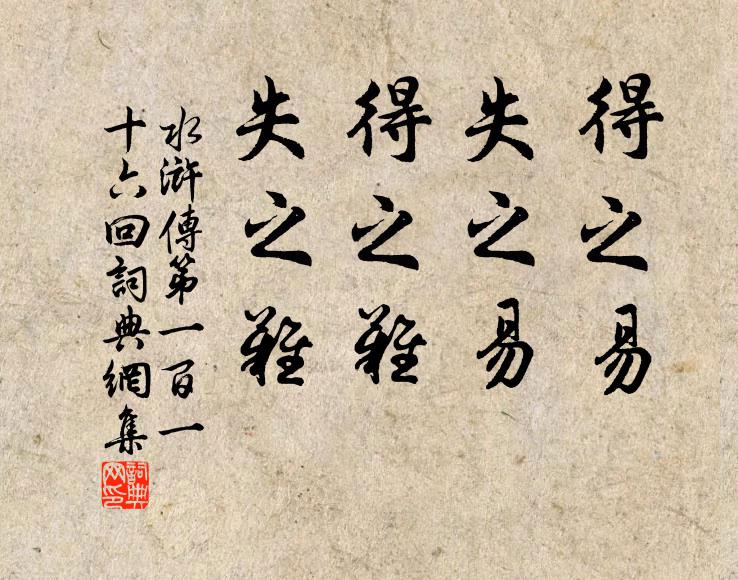 得之易
失之易
得之難
失之難
水滸傳第一百一
十六回詞典網集
詞典
网印